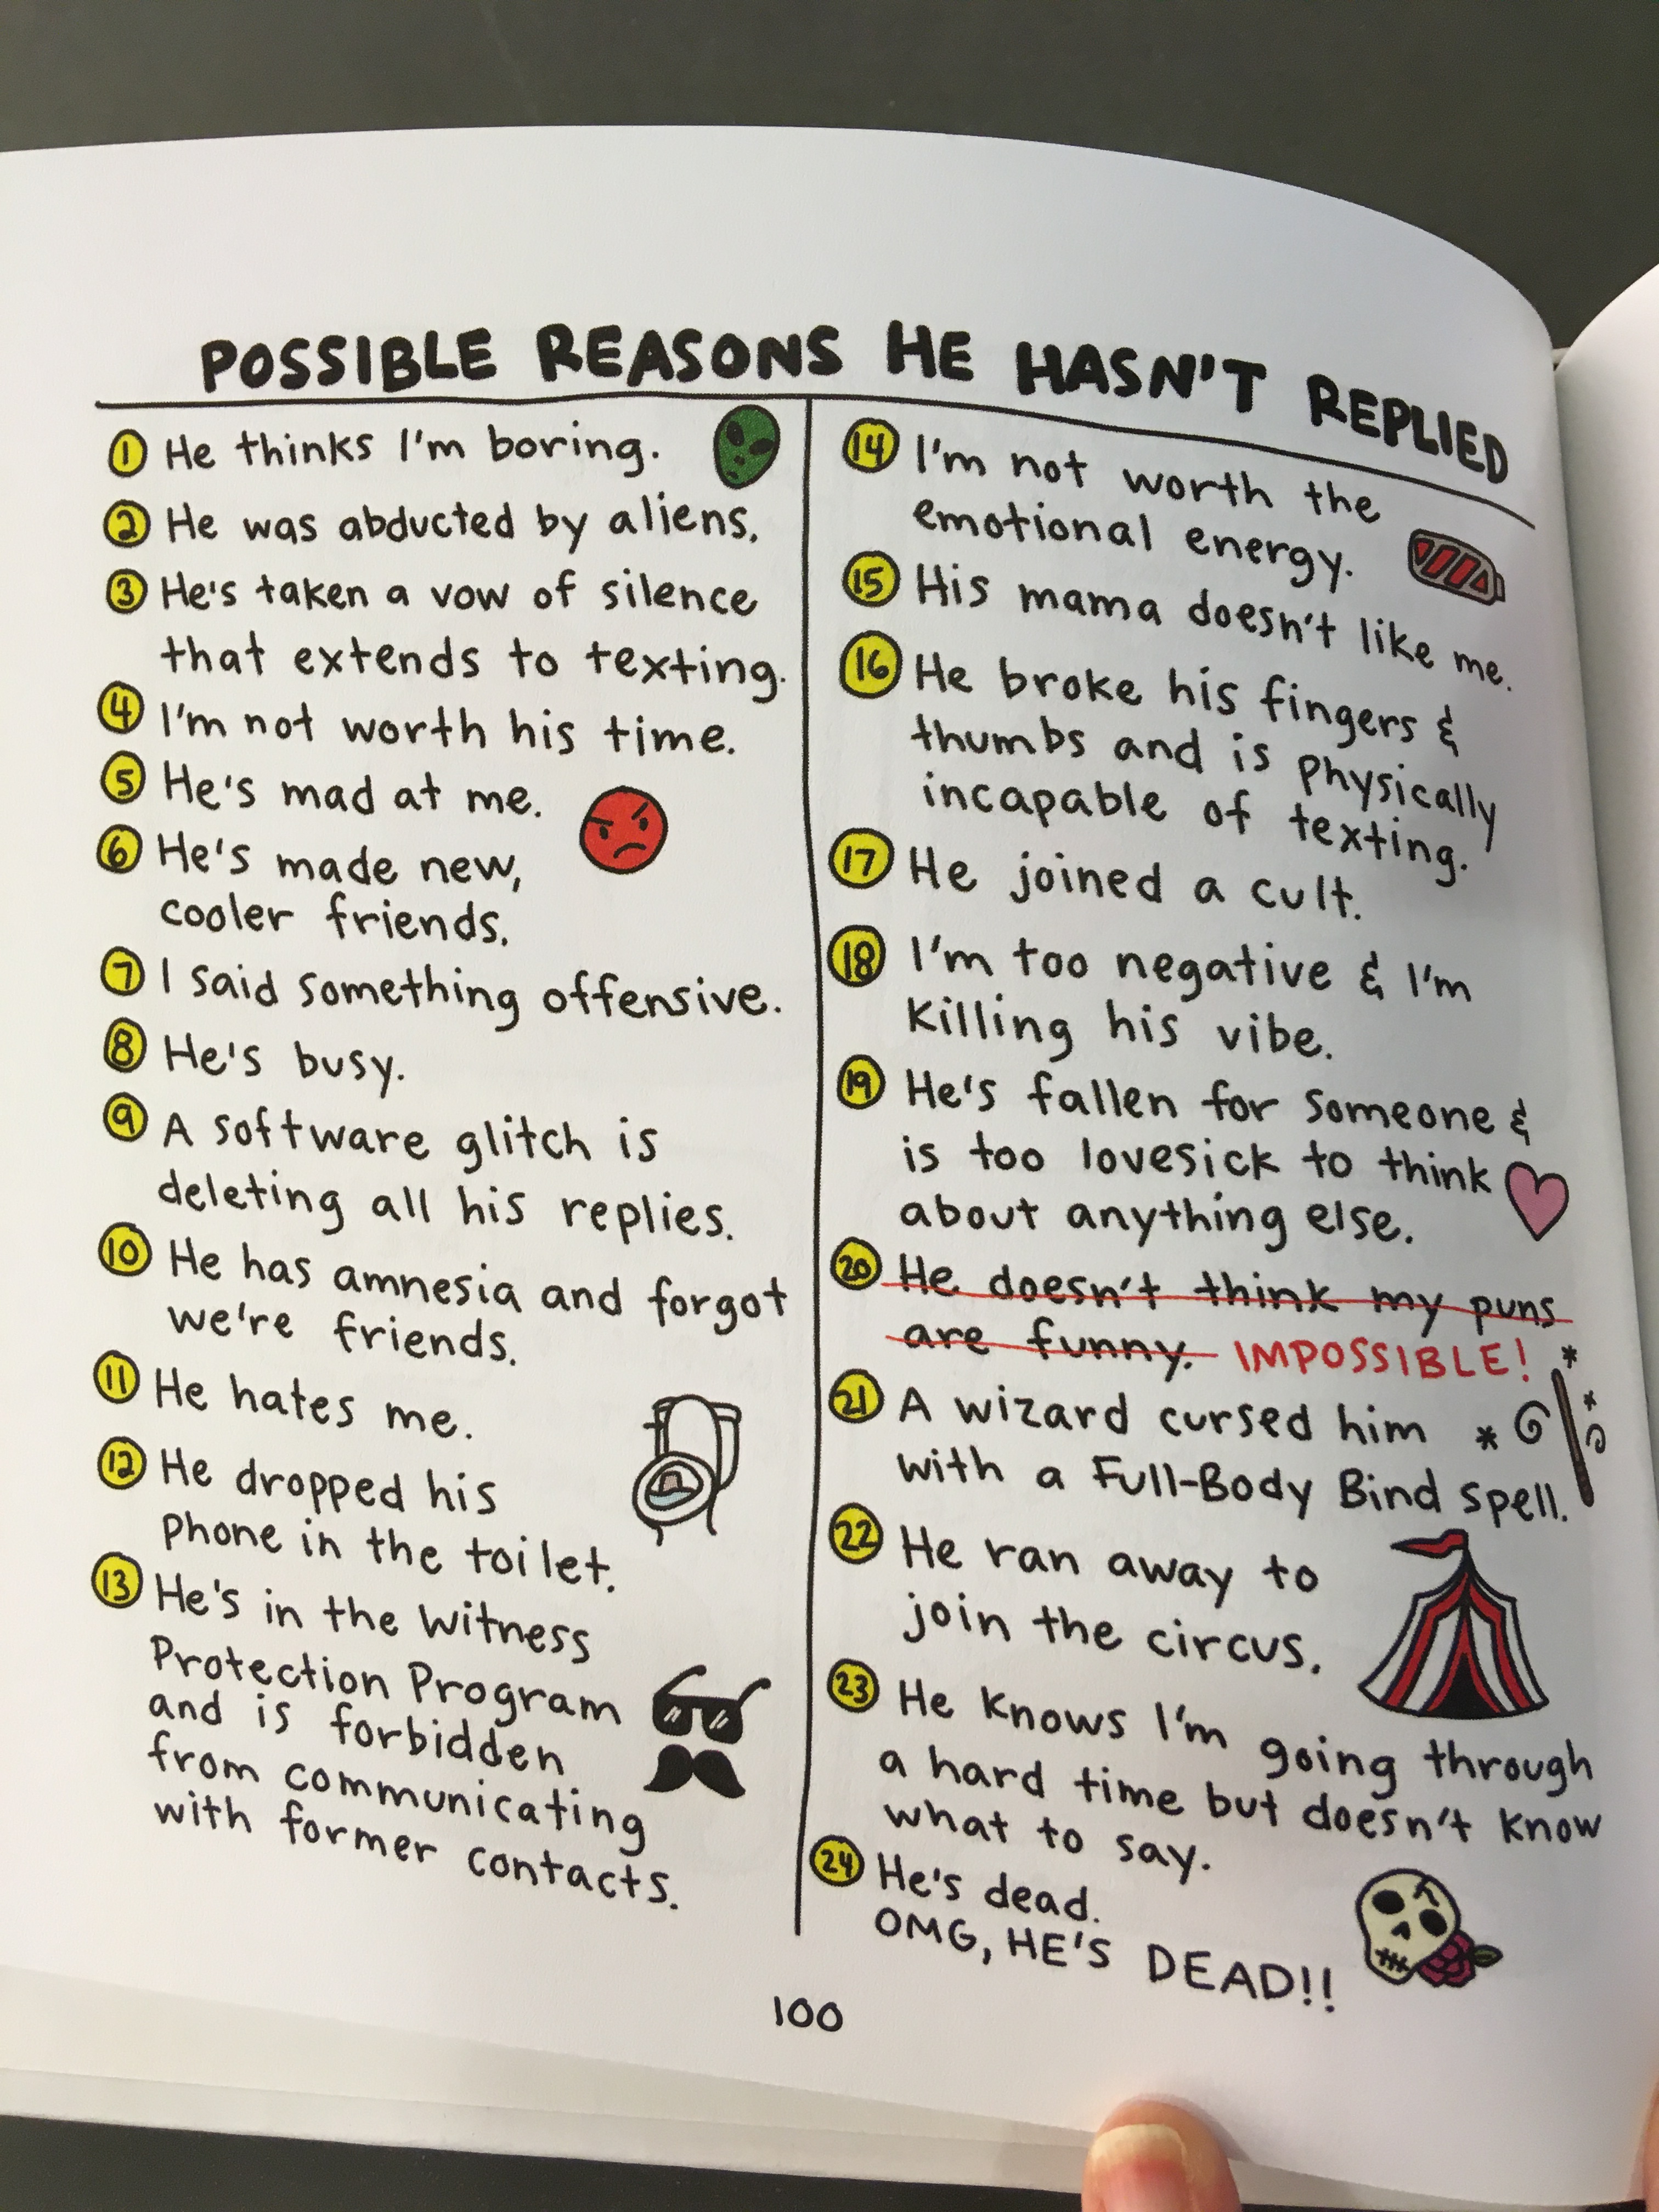 POSSIBLE REASONS HE HASN'T REPLIED
1 He thinks I'm boring.
2 He was abducted by aliens.
3 He's taken a vow of silence
that extends to texting.
4 I'm not worth his time.
5 He's mad at me.
6 He's made new,
cooler friends.
7 I said something offensive.
8 He's busy.
9 A software glitch is
deleting all his replies.
10 He has amnesia and forgot
we're friends.
11 He hates me.
12 He dropped his
phone in the toilet.
13 He's in the Witness
Protection Program
and is forbidden
from communicating
with former contacts.
14 I'm not worth the
emotional energy.
15 His mama doesn't like me.
16 He broke his fingers &
thumbs and is physically
incapable of texting.
17 He joined a cult.
18 I'm too negative & I'm
killing his vibe.
19 He's fallen for someone &
is too lovesick to think
about anything else.
20 He doesn't think my puns
are funny. IMPOSSIBLE!
21 A wizard cursed him
with a Full-Body Bind spell.
22 He ran away to
join the circus.
23 He knows I'm going through
a hard time but doesn't know
what to say.
24 He's dead.
OMG, HE'S DEAD!!
100